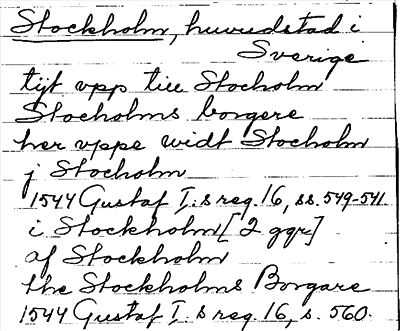 Stockholm, huvudstad i
Sverige
tijt vpp till Stocholm
Stocholms borgere
her vppe widt Stocholm
j Stocholm
1544 Gustaf I:s reg. 16, ss. 549-541.
i Stockholm [2 ggr]
af Stockholm
the Stockholms Borgare
1544 Gustaf I. s reg. 16, s. 560.